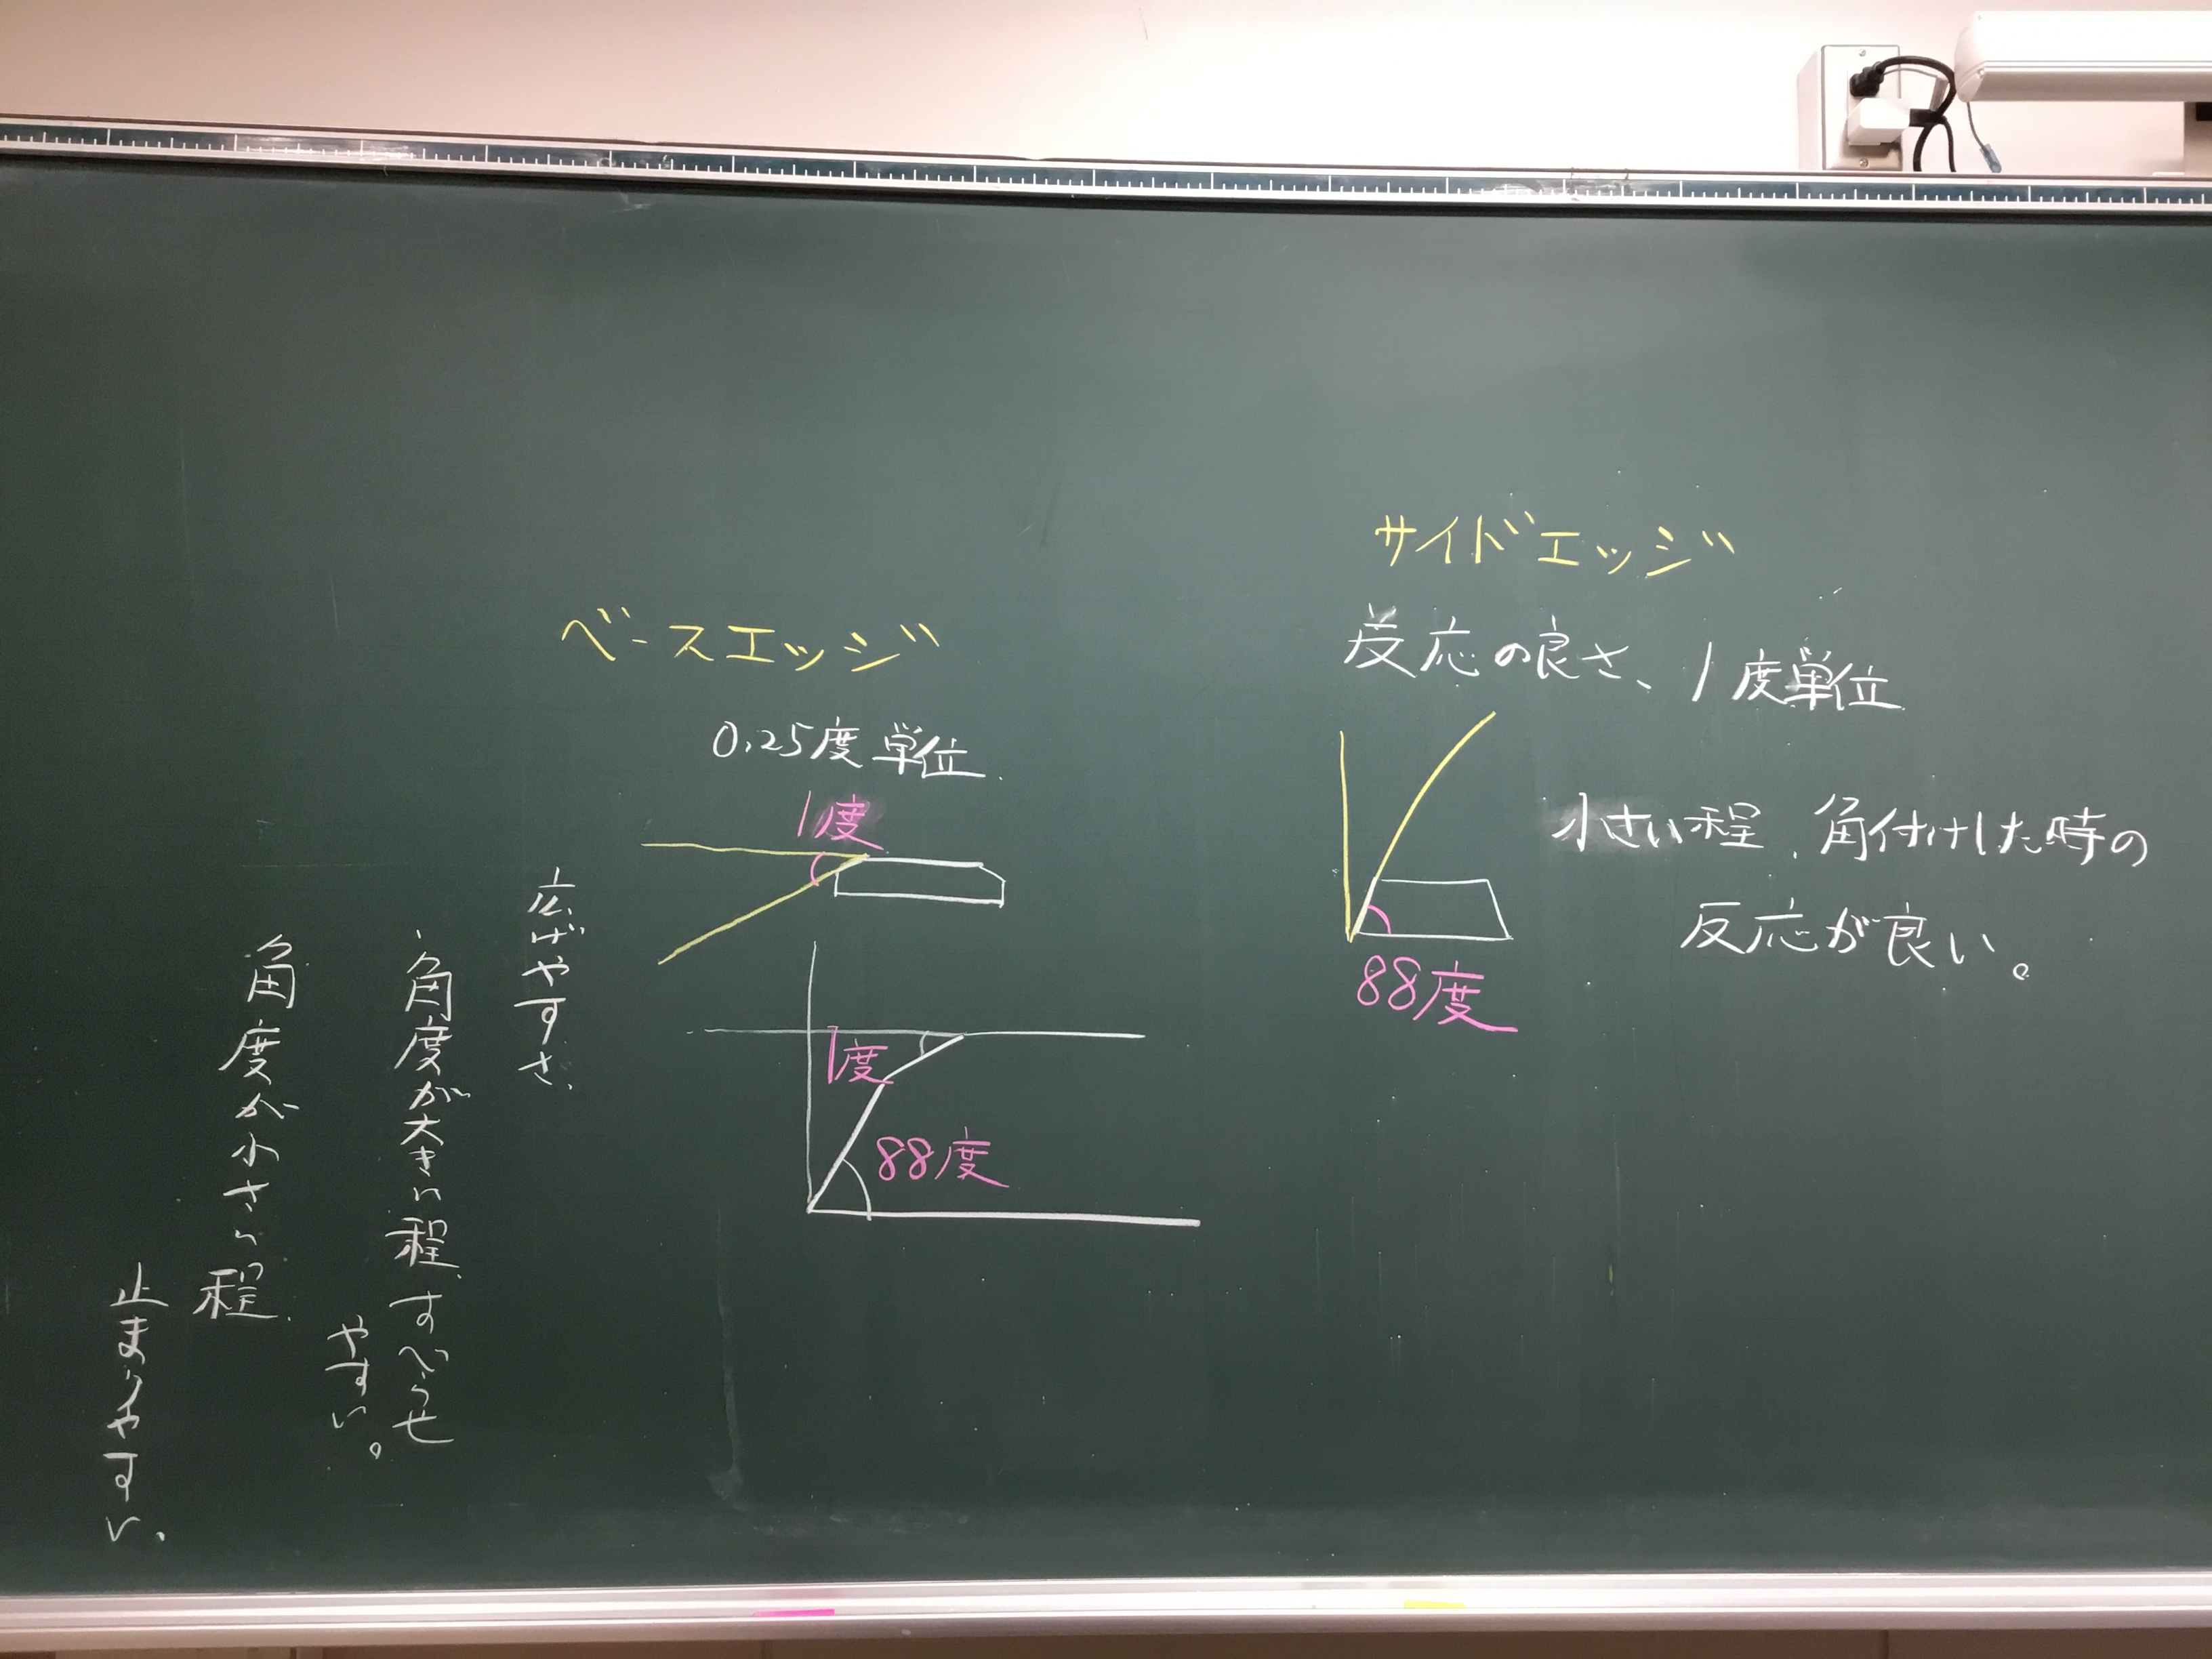 サイドエッジ
反応の良さ、1度単位
小さい程、角付けした時の
反応が良い。
88度
ベースエッジ
0.25度単位
1度
1度
88度
広げやすさ、
角度が大きい程、すべらせ
やすい。
角度が小さい程、
止まりやすい、